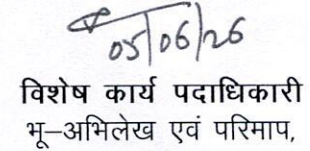 05/06/26
विशेष कार्य पदाधिकारी
भू-अभिलेख एवं परिमाप,